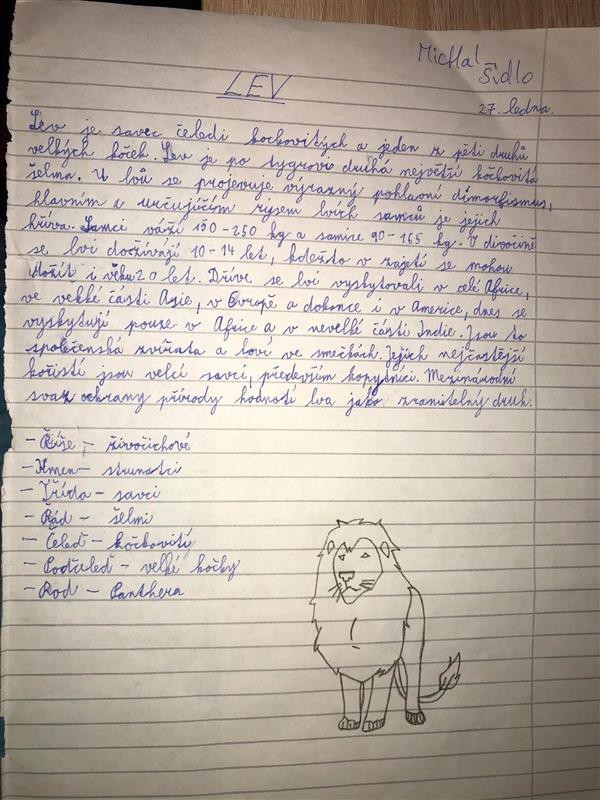 Michal
Šídlo
LEV
27. ledna.
Lev je savec čeledi kockovitých a jeden z pěti druhů
velkých koček. Lev je po tygrovi druhá největší kočkovitá
šelma. U lvů se projevuje výrazný pohlavní dimorfismus,
hlavním a určujícím rysem lvích samců je jejich
hříva. Samci váží 150-250 kg a samice 90-165 kg. V divočině
se lvi dožívají 10-14 let, kdežto v zajetí se mohou
dožít i věku 20 let. Dříve se lvi vyskytovali v celé Africe,
ve velké části Asie, v Evropě a dokonce i v Americe, dnes se
vyskytují pouze v Africe a v nevelké části Indie. Jsou to
společenská zvířata a loví ve smečkách. Jejich nejčastější
kořistí jsou velcí savci, především kopytníci. Mezinárodní
svaz ochrany přírody hodnotí lva jako zranitelný druh.
- Říše - živočichové
- Kmen - strunatci
- Třída - savci
- Řád - šelmi
- Čeleď - kočkovití
- Podčeleď - velké kočky
- Rod - Panthera